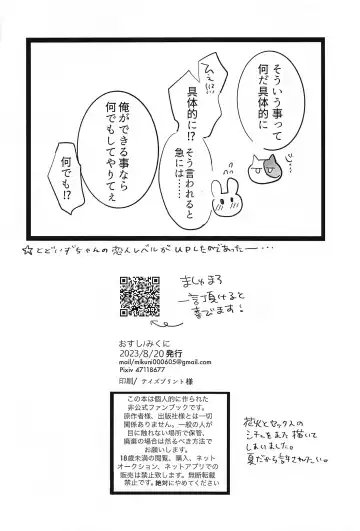 そういう事って
何だ具体的に
ひぇっ!!
具体的に!?
そう言われると
急には……
俺ができる事なら
何でもしてやりてぇ
何でも!?
☆とどいずちゃんの恋人レベルがUPしたのであった―…
ましゅまろ
一言頂けると
喜びます!
おすし/みくに
2023/8/20 発行
mail/mikuni000605@gmail.com
Pixiv 47118677
印刷/ テイズプリント様
この本は個人的に作られた
非公式ファンブックです。
原作者様、出版社様とは一切
関係ありません。一般の人が
目に触れない場所で保管、
廃棄の場合は然るべき方法で
お願いします。
18歳未満の閲覧、購入、ネット
オークション、ネットアプリでの
販売は禁止です。無断転載
禁止です。絶対にやめてください
花火とセックスの
シチュをまた描いて
しまいました。
夏だから許されたい。